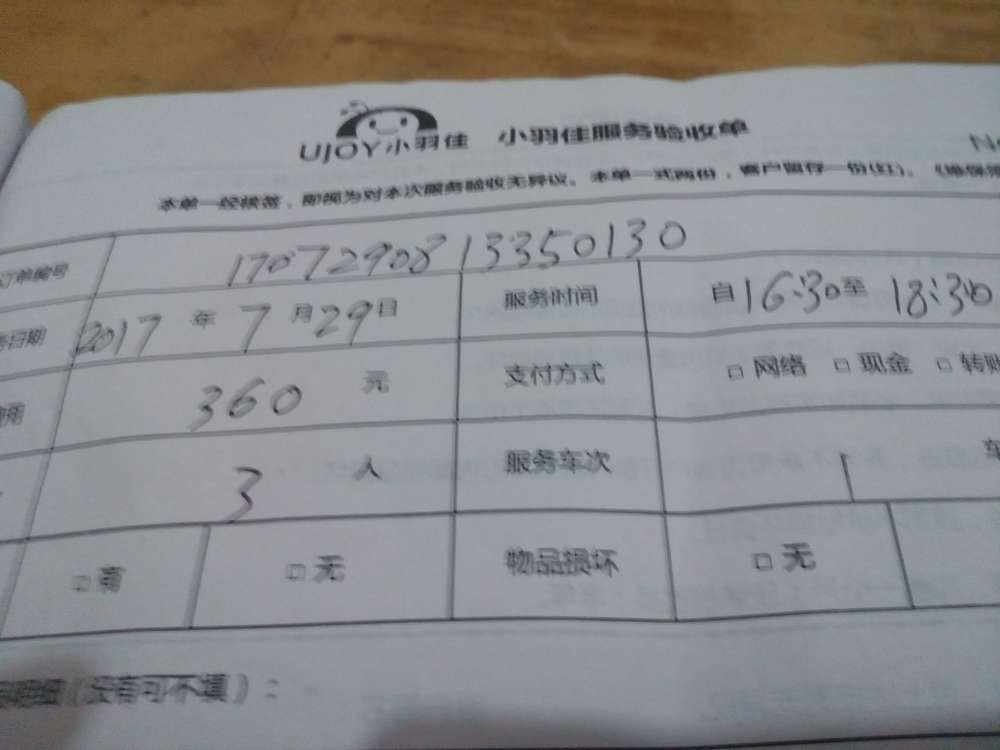 UJOY小羽佳 小羽佳服务验收单 N
本单一经核签，即视为对本次服务验收无异议。本单一式两份，客户留存一份(红)。
订单编号 1707290813350130
务日期 2017 年 7 月 29 日 服务时间 自 16:30 至 18:30
360 元 支付方式 □ 网络 □ 现金 □ 转账
3 人 服务车次 1 车
□ 有 □ 无 物品损坏 □ 无
明细（没有可不填）：